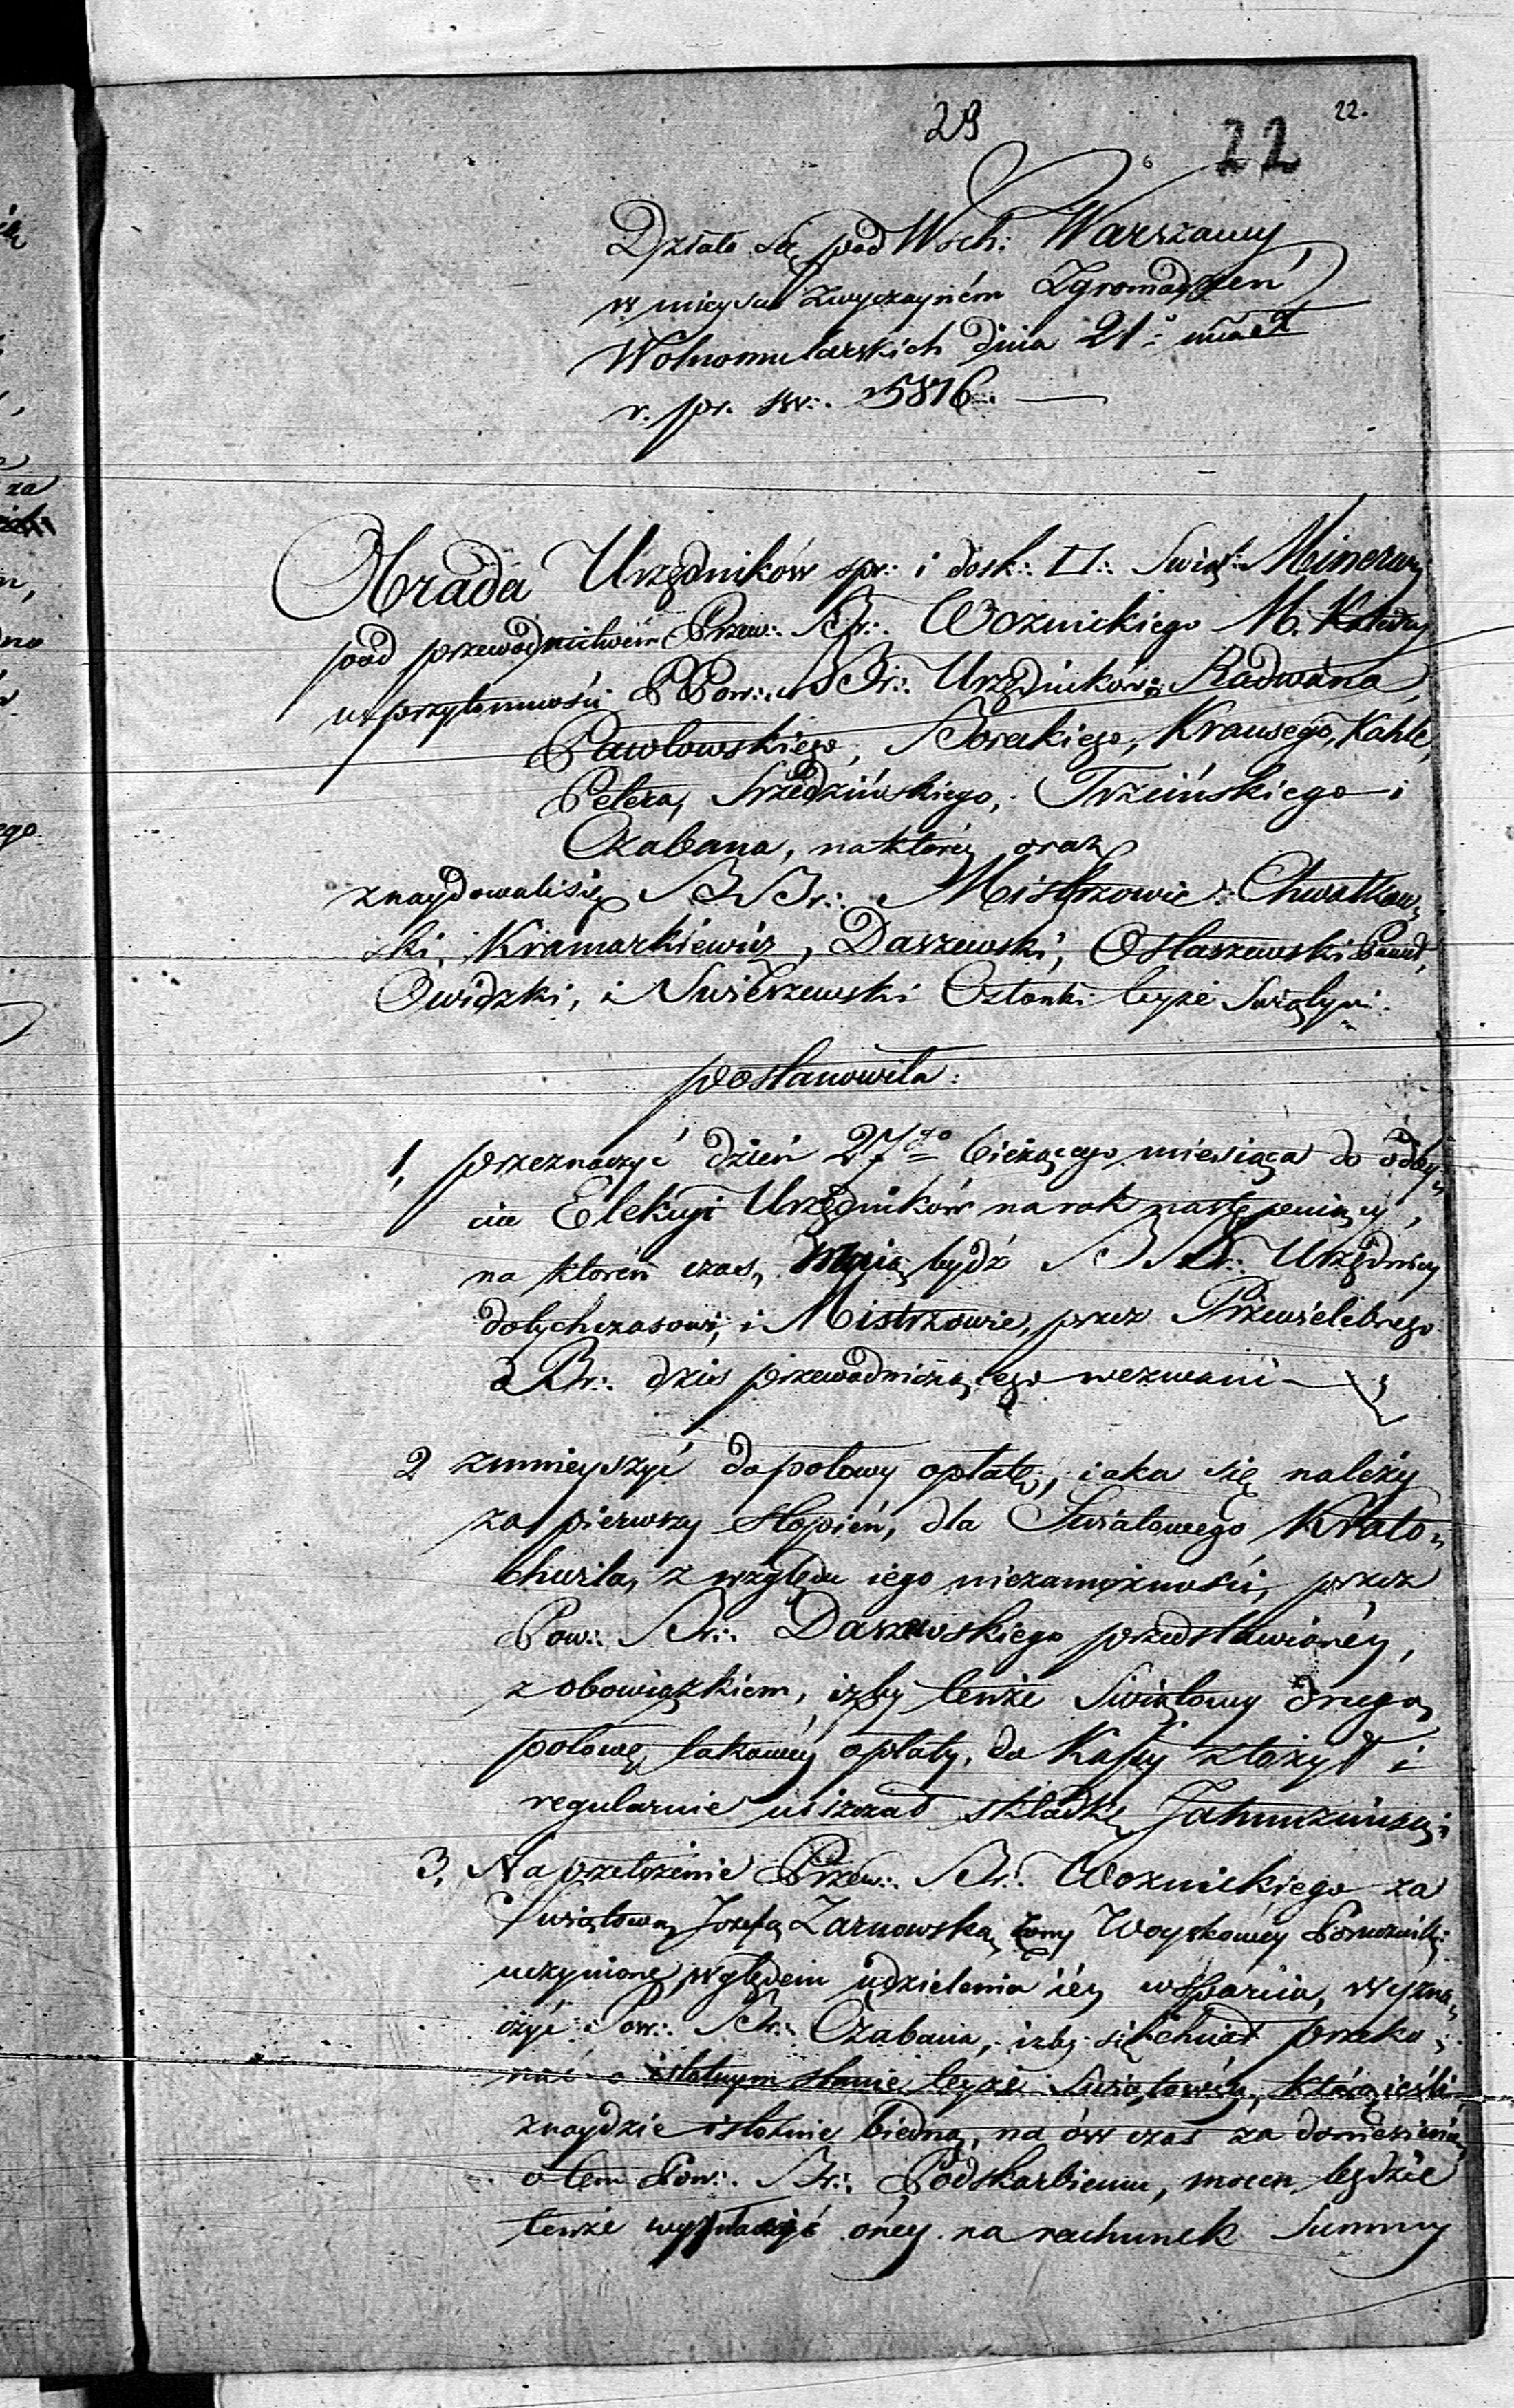 29
22.
22
Działo się pod Wsch: Warszawy
w mieyscu zwyczaynem Zgromadzeń
Wolnomularskich dnia 21
r. pr. sw:. 5816.
Obrada Urzędników spr: i dosk: Swią: Minerwy
pod przewodnictwem Przew:. Br:. Woznickiego M. Katedry
w przytomności PPow:. BBr:. Urzędników: Radwana,
Pawłowskiego, Krausego, Kahle,
Petera, Srzedzińskiego, Trzcińskiego i
Czabana, na którey oraz
znaydowali się BBr:. Mistrzowie: Chwatkow-
ski, Kramarkiewicz, Daszewski, Ostaszewski Paweł,
Owidzki, i Swierszewski Członki teyże Swiątyni.
postanowiła:
1, przeznaczyć dzień 27go bieżącego miesiąca do odby-
cia Elekcyi Urzędników na rok następuiący,
na któren czas, maią bydź BBr:. Urzędnicy
dotychczasowi, i Mistrzowie, przez Przewielebnego
Br:. dziś przewodniczącego wezwani
2 zmnieyszyć do połowy opłatę, iaka się należy
za pierwszy stopień, dla Swiatowego Krato-
chwila, z względu iego niezamożności, przez
Pow:. Br:. Daszewskiego przedstawioney,
z obowiązkiem, iżby tenże Swiatowy drugą
połowę takowey opłaty, do Kassy złożył i
regularnie uiszczał składkę Jałmużniczą
3, Na przełożenie Przew:. Br:. Woznickiego za
Swiatową Jozefą Zarnowską żony Woyskowey
uczynione względem udzielenia iey wsparcia, wyzna-
czyć Pow:. Br:. Czabana, iżby się chciał przeko-
nać o istotnym stanie teyże Swiatowey, którą ieśli
znaydzie istotnie biedną, na ów czas za doniesieniem
o tem Pow:. Br:. Podskarbiemu, mocen będzie
tenże wypłacić oney na rachunek Summy